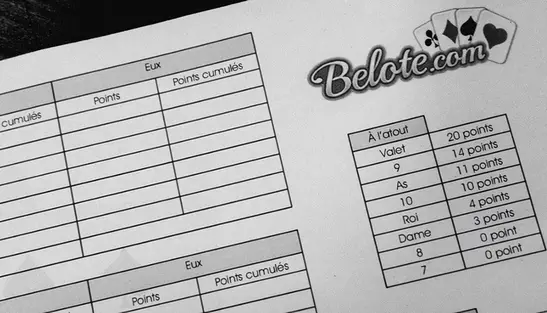 Belote.com
Eux
cumulés Points Points cumulés
À l'atout
Valet 20 points
9 14 points
As 11 points
10 10 points
Roi 4 points
Dame 3 points
8 0 point
7 0 point
Eux
Points Points cumulés